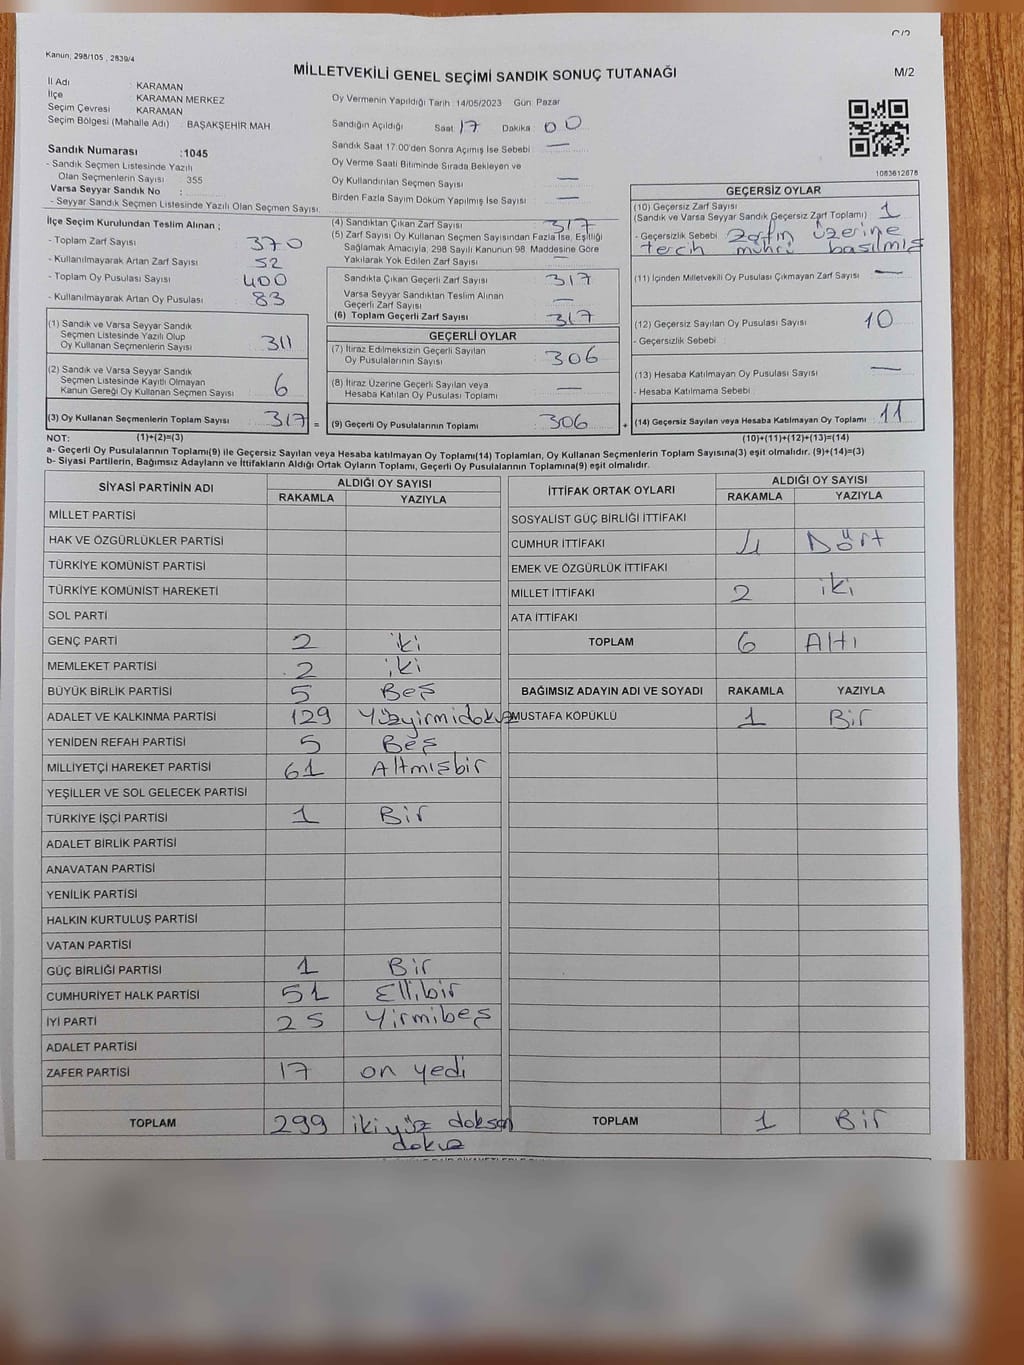 Kanun, 298/105 , 2839/4
MİLLETVEKİLİ GENEL SEÇİMİ SANDIK SONUÇ TUTANAĞI
M/2
İl Adı : KARAMAN
İlçe : KARAMAN MERKEZ
Seçim Çevresi : KARAMAN
Seçim Bölgesi (Mahalle Adı) : BAŞAKŞEHİR MAH
Sandık Numarası :1045
- Sandık Seçmen Listesinde Yazılı
Olan Seçmenlerin Sayısı : 355
Varsa Seyyar Sandık No :
- Seyyar Sandık Seçmen Listesinde Yazılı Olan Seçmen Sayısı
Oy Vermenin Yapıldığı Tarih 14/05/2023 Gün: Pazar
Sandığın Açıldığı Saat 17 Dakika 00
Sandık Saat 17.00'den Sonra Açılmış İse Sebebi —
Oy Verme Saati Bitiminde Sırada Bekleyen ve
Oy Kullandırılan Seçmen Sayısı —
Birden Fazla Sayım Döküm Yapılmış İse Sayısı —
1083612678
İlçe Seçim Kurulundan Teslim Alınan ;
- Toplam Zarf Sayısı 370
- Kullanılmayarak Artan Zarf Sayısı 52
- Toplam Oy Pusulası Sayısı 400
- Kullanılmayarak Artan Oy Pusulası 83
(1) Sandık ve Varsa Seyyar Sandık
Seçmen Listesinde Yazılı Olup
Oy Kullanan Seçmenlerin Sayısı 311
(2) Sandık ve Varsa Seyyar Sandık
Seçmen Listesinde Kayıtlı Olmayan
Kanun Gereği Oy Kullanan Seçmen Sayısı 6
(3) Oy Kullanan Seçmenlerin Toplam Sayısı 317 =
(4) Sandıktan Çıkan Zarf Sayısı 317
(5) Zarf Sayısı Oy Kullanan Seçmen Sayısından Fazla İse, Eşitliği
Sağlamak Amacıyla, 298 Sayılı Kanunun 98. Maddesine Göre
Yakılarak Yok Edilen Zarf Sayısı —
Sandıkta Çıkan Geçerli Zarf Sayısı 317
Varsa Seyyar Sandıktan Teslim Alınan
Geçerli Zarf Sayısı —
(6) Toplam Geçerli Zarf Sayısı 317
GEÇERLİ OYLAR
(7) İtiraz Edilmeksizin Geçerli Sayılan
Oy Pusulalarının Sayısı 306
(8) İtiraz Üzerine Geçerli Sayılan veya
Hesaba Katılan Oy Pusulası Toplamı —
(9) Geçerli Oy Pusulalarının Toplamı : 306 +
GEÇERSİZ OYLAR
(10) Geçersiz Zarf Sayısı 1
(Sandık ve Varsa Seyyar Sandık Geçersiz Zarf Toplamı)
- Geçersizlik Sebebi zarfın üzerine
tercih mührü basılmış
(11) İçinden Milletvekili Oy Pusulası Çıkmayan Zarf Sayısı —
(12) Geçersiz Sayılan Oy Pusulası Sayısı 10
- Geçersizlik Sebebi
(13) Hesaba Katılmayan Oy Pusulası Sayısı —
- Hesaba Katılmama Sebebi
(14) Geçersiz Sayılan veya Hesaba Katılmayan Oy Toplamı 11
NOT: (1)+(2)=(3) (10)+(11)+(12)+(13)=(14)
a- Geçerli Oy Pusulalarının Toplamı(9) ile Geçersiz Sayılan veya Hesaba katılmayan Oy Toplamı(14) Toplamları, Oy Kullanan Seçmenlerin Toplam Sayısına(3) eşit olmalıdır. (9)+(14)=(3)
b- Siyasi Partilerin, Bağımsız Adayların ve İttifakların Aldığı Ortak Oyların Toplamı, Geçerli Oy Pusulalarının Toplamına(9) eşit olmalıdır.
SİYASİ PARTİNİN ADI ALDIĞI OY SAYISI
RAKAMLA YAZIYLA
MİLLET PARTİSİ
HAK VE ÖZGÜRLÜKLER PARTİSİ
TÜRKİYE KOMÜNİST PARTİSİ
TÜRKİYE KOMÜNİST HAREKETİ
SOL PARTİ
GENÇ PARTİ 2 iki
MEMLEKET PARTİSİ 2 iki
BÜYÜK BİRLİK PARTİSİ 5 Beş
ADALET VE KALKINMA PARTİSİ 129 Yüzyirmidokuz
YENİDEN REFAH PARTİSİ 5 Beş
MİLLİYETÇİ HAREKET PARTİSİ 61 Altmışbir
YEŞİLLER VE SOL GELECEK PARTİSİ
TÜRKİYE İŞÇİ PARTİSİ 1 Bir
ADALET BİRLİK PARTİSİ
ANAVATAN PARTİSİ
YENİLİK PARTİSİ
HALKIN KURTULUŞ PARTİSİ
VATAN PARTİSİ
GÜÇ BİRLİĞİ PARTİSİ 1 Bir
CUMHURİYET HALK PARTİSİ 51 Ellibir
İYİ PARTİ 25 Yirmibeş
ADALET PARTİSİ
ZAFER PARTİSİ 17 on yedi
TOPLAM 299 ikiyüz doksan
dokuz
İTTİFAK ORTAK OYLARI ALDIĞI OY SAYISI
RAKAMLA YAZIYLA
SOSYALİST GÜÇ BİRLİĞİ İTTİFAKI
CUMHUR İTTİFAKI 4 Dört
EMEK VE ÖZGÜRLÜK İTTİFAKI
MİLLET İTTİFAKI 2 iki
ATA İTTİFAKI
TOPLAM 6 Altı
BAĞIMSIZ ADAYIN ADI VE SOYADI RAKAMLA YAZIYLA
MUSTAFA KÖPÜKLÜ 1 Bir
TOPLAM 1 Bir